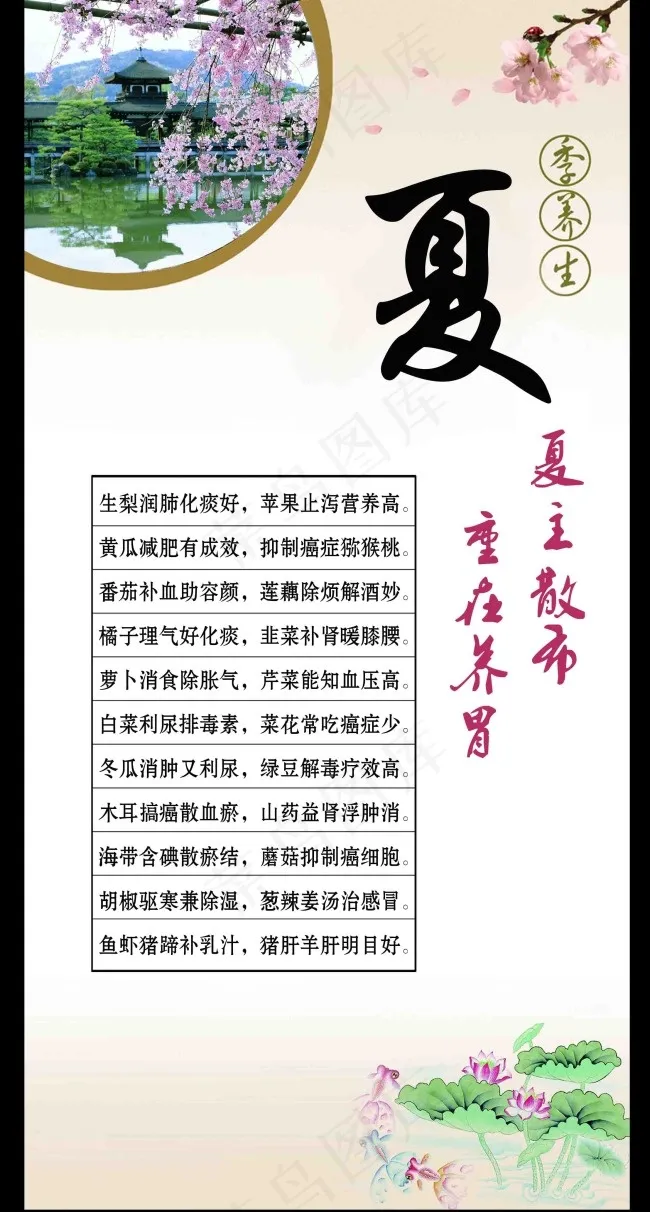 夏
季养生
夏主散布
重在养胃
生梨润肺化痰好，苹果止泻营养高。
黄瓜减肥有成效，抑制癌症猕猴桃。
番茄补血助容颜，莲藕除烦解酒妙。
橘子理气好化痰，韭菜补肾暖膝腰。
萝卜消食除胀气，芹菜能知血压高。
白菜利尿排毒素，菜花常吃癌症少。
冬瓜消肿又利尿，绿豆解毒疗效高。
木耳搞癌散血瘀，山药益肾浮肿消。
海带含碘散瘀结，蘑菇抑制癌细胞。
胡椒驱寒兼除湿，葱辣姜汤治感冒。
鱼虾猪蹄补乳汁，猪肝羊肝明目好。